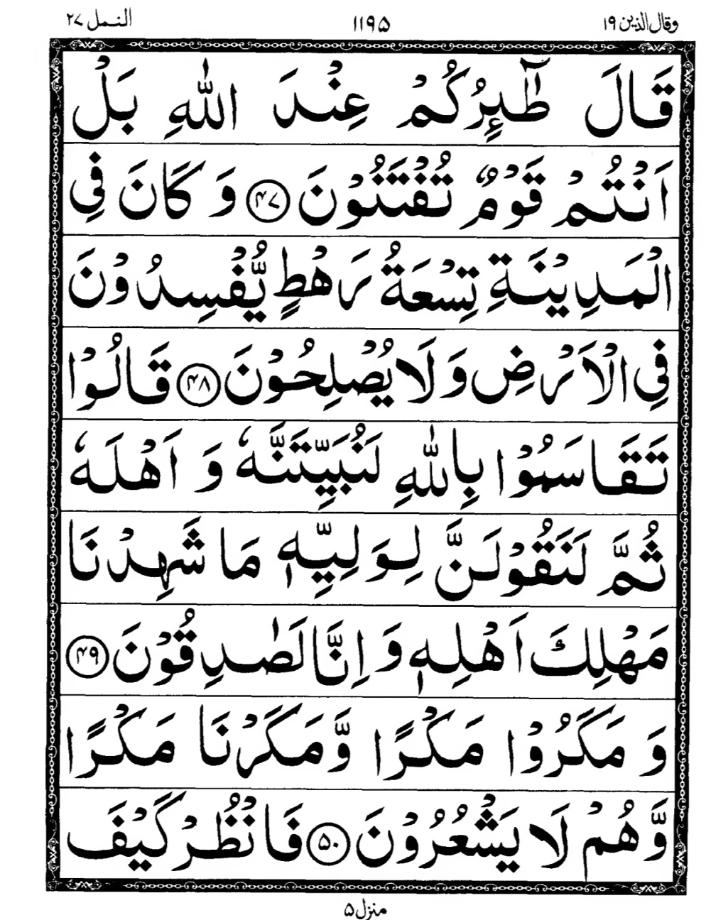 وقال الذین ۱۹
۱۱۹۵
النمل ۲۷
قَالَ طٰٓئِرُكُمْ عِنْدَ اللّٰهِ بَلْ
اَنْتُمْ قَوْمٌ تُفْتَنُوْنَ ﴿۴۷﴾ وَ كَانَ فِی
الْمَدِیْنَةِ تِسْعَةُ رَهْطٍ یُّفْسِدُوْنَ
فِی الْاَرْضِ وَ لَا یُصْلِحُوْنَ ﴿۴۸﴾ قَالُوْا
تَقَاسَمُوْا بِاللّٰهِ لَنُبَیِّتَنَّهٗ وَ اَهْلَهٗ
ثُمَّ لَنَقُوْلَنَّ لِوَلِیِّهٖ مَا شَهِدْنَا
مَهْلِكَ اَهْلِهٖ وَ اِنَّا لَصٰدِقُوْنَ ﴿۴۹﴾
وَ مَكَرُوْا مَكْرًا وَّ مَكَرْنَا مَكْرًا
وَّ هُمْ لَا یَشْعُرُوْنَ ﴿۵۰﴾ فَانْظُرْ كَیْفَ
منزل ۵